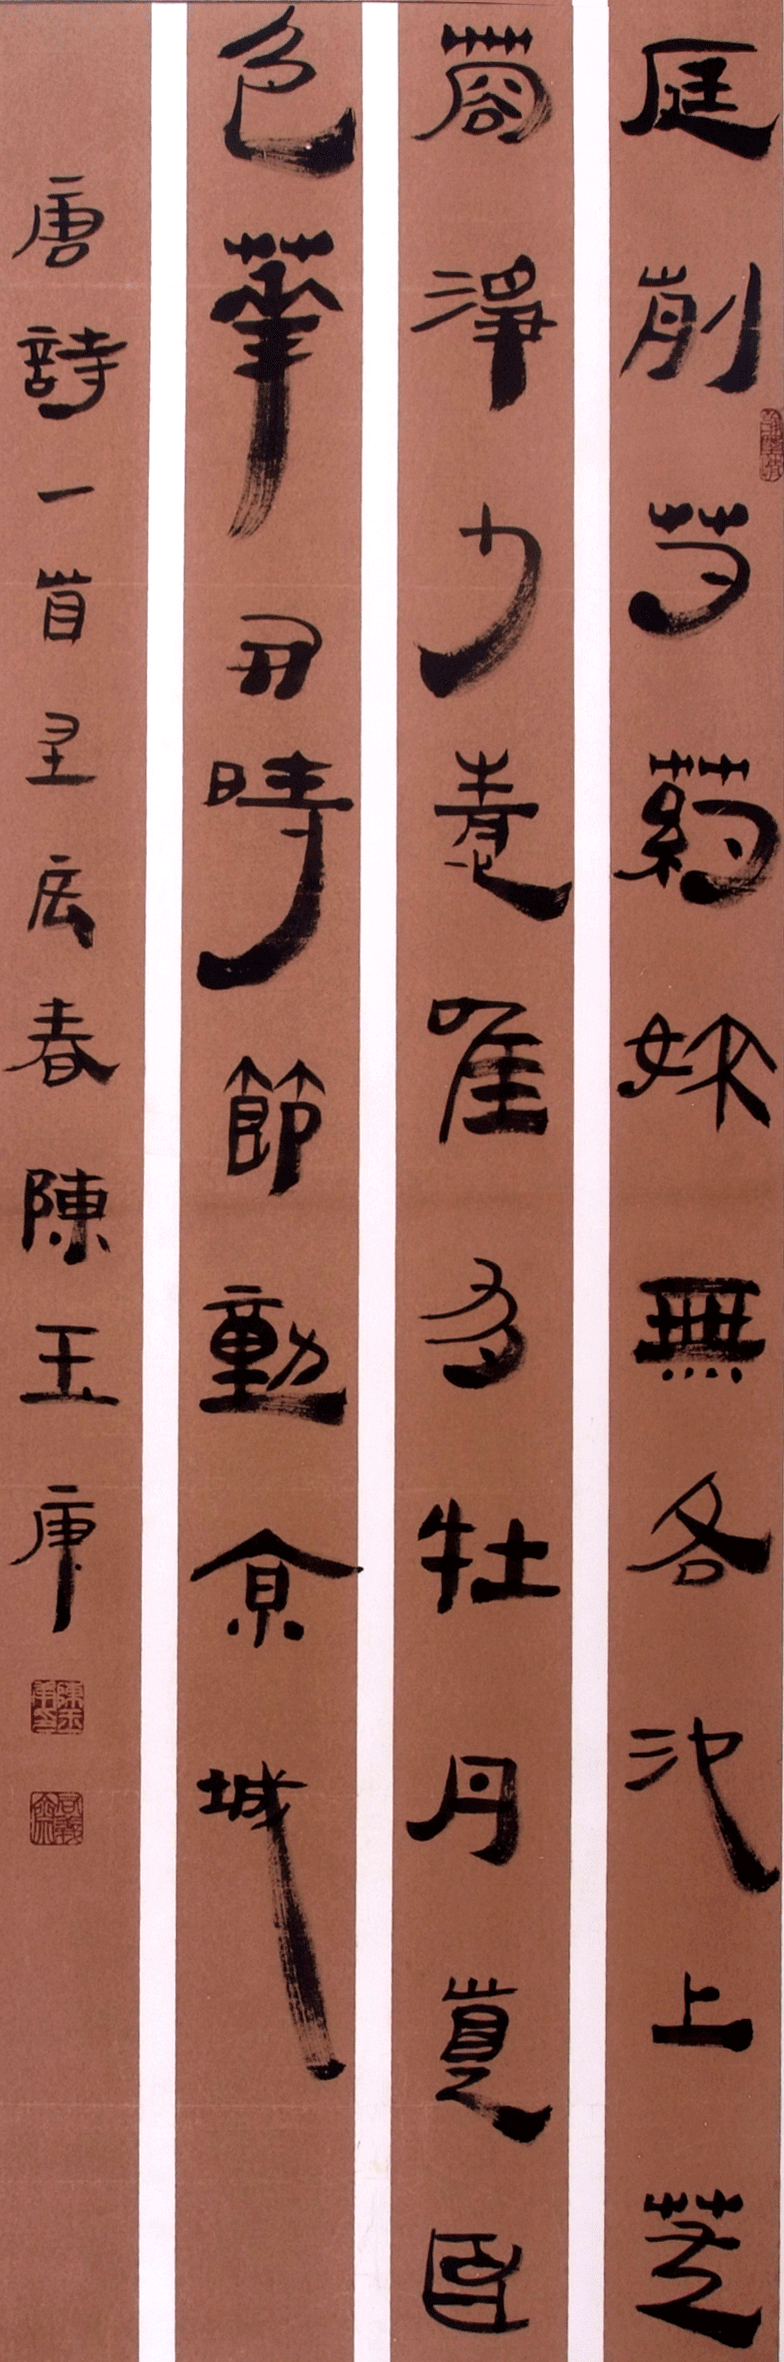 庭前芍葯妖無各池上芙
蓉淨少情唯有牡丹真國
色華開時節動京城
唐詩一首壬辰春陳玉庚